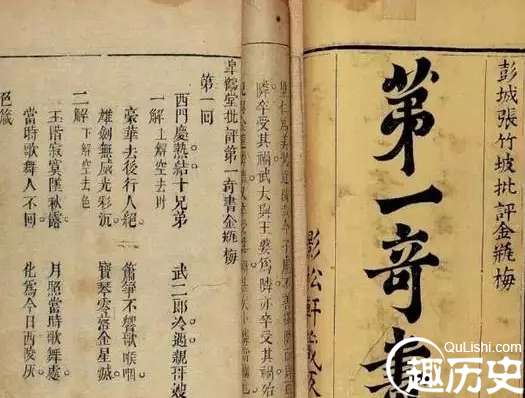 彭城張竹坡批評金瓶梅
第一奇書
影松軒藏
隣卒受其禍武大與王婆為隣亦卒受其禍
皋鶴堂批評第一奇書金瓶梅
第一回
西門慶熱結十兄弟 武二郎冷遇親哥嫂
一解 上解空去財
豪華去後行人絕 簫箏不響歌喉咽
雄劍無威光彩沉 寶琴零落金星滅
二解 下解空去色
玉階寂寞墜秋露 月照當時歌舞處
當時歌舞人不回 化為今日西陵灰
色箴
QuLishi.com
趣历史